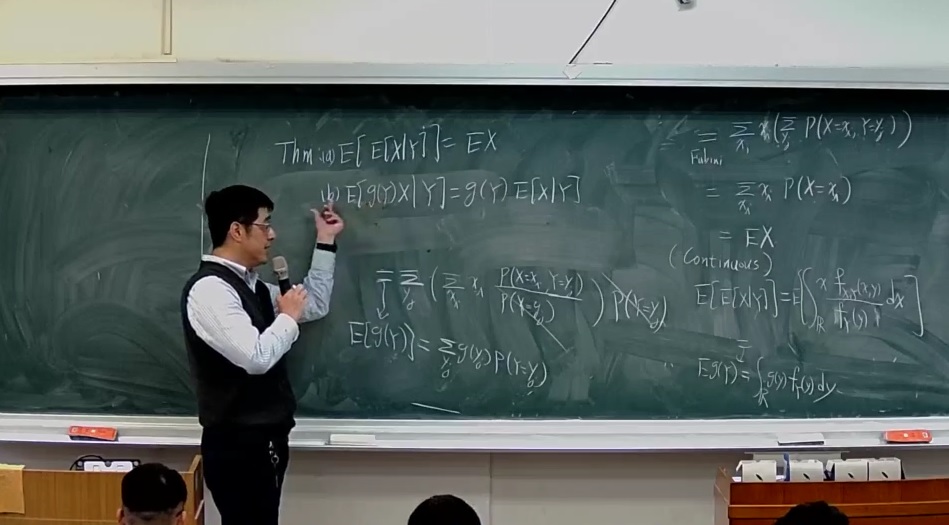 Thm:(a) E[E[X|Y]] = EX
(b) E[g(Y)X|Y] = g(Y) E[X|Y]
= Σ_{y_j} ( Σ_{x_i} x_i P(X=x_i, Y=y_j) / P(Y=y_j) ) P(Y=y_j)
E[g(Y)] = Σ_{y_j} g(y_j) P(Y=y_j)
= Σ_{x_i} x_i ( Σ_{y_j} P(X=x_i, Y=y_j) )
Fubini
= Σ_{x_i} x_i P(X=x_i)
= EX
(Continuous)
E[E[X|Y]] = E[ ∫_ℝ x f_{X,Y}(x,y) / f_Y(y) dx ]
Eg(Y) = ∫_ℝ g(y) f_Y(y) dy